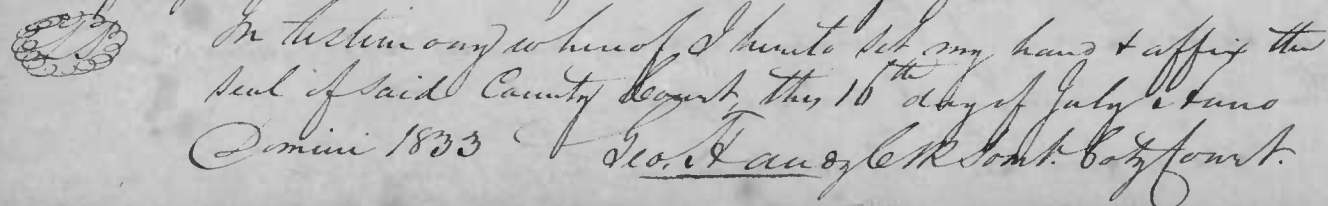 LS In testimony whereof I hereto set my hand & affix the
seal of said County Court, this 16th day of July Anno
Domini 1833 Geo. Handy Clk Somt. Coty Court.